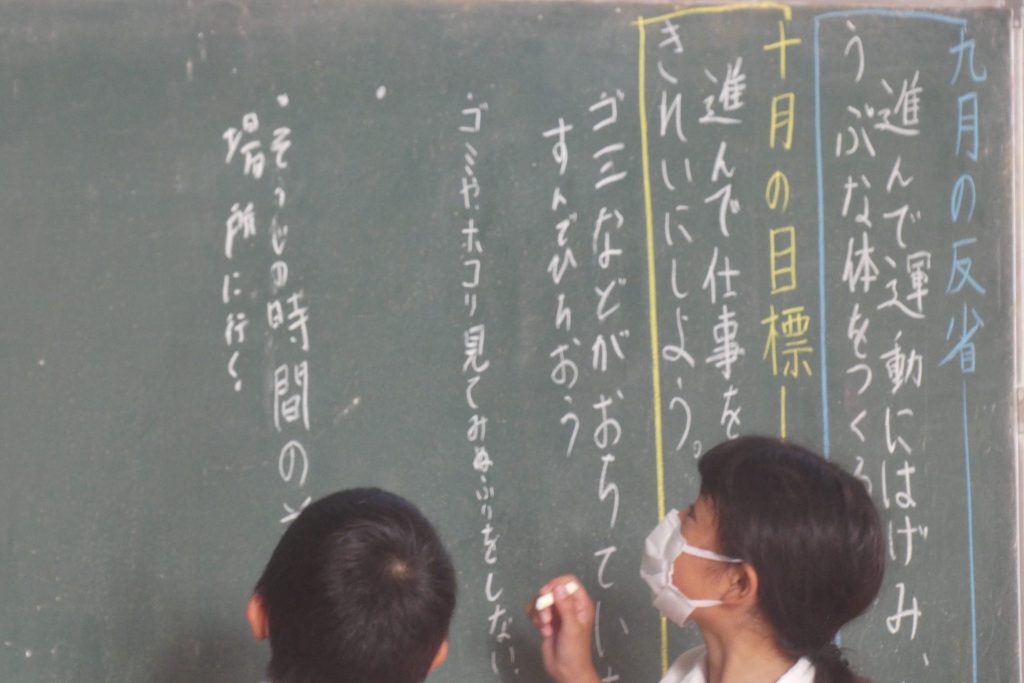 九月の反省
進んで運動にはげみ、
うぶな体をつくる
十月の目標
進んで仕事を
きれいにしよう。
ゴミなどがおちてい
すすんでひろおう
・ゴミやホコリ見てみぬふりをしない
・
・そうじの時間の
場所に行く。